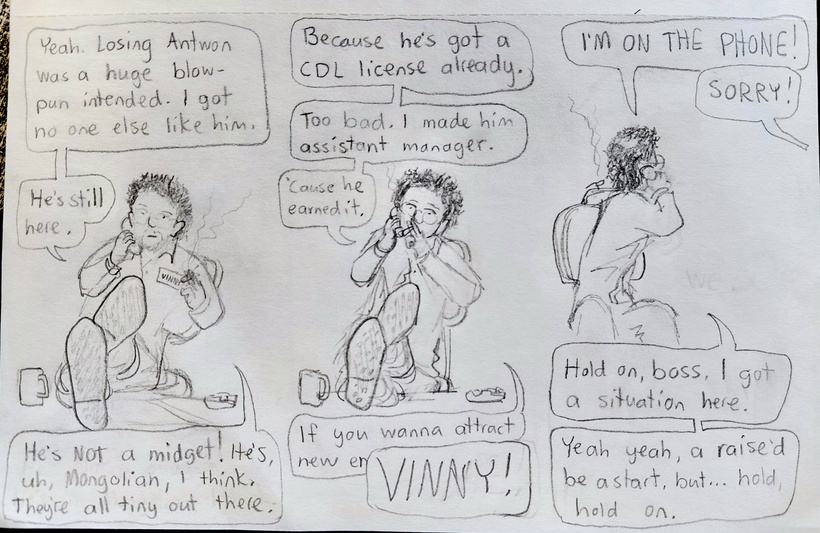 Yeah. Losing Antwon
was a huge blow-
pun intended. I got
no one else like him.
He's still
here.
VINNY
He's NOT a midget! He's,
uh, Mongolian, I think.
They're all tiny out there.
Because he's got a
CDL license already.
Too bad. I made him
assistant manager.
'Cause he
earned it.
If you wanna attract
new em
VINNY!
I'M ON THE PHONE!
SORRY!
Hold on, boss. I got
a situation here.
Yeah yeah, a raise'd
be a start, but... hold,
hold on.